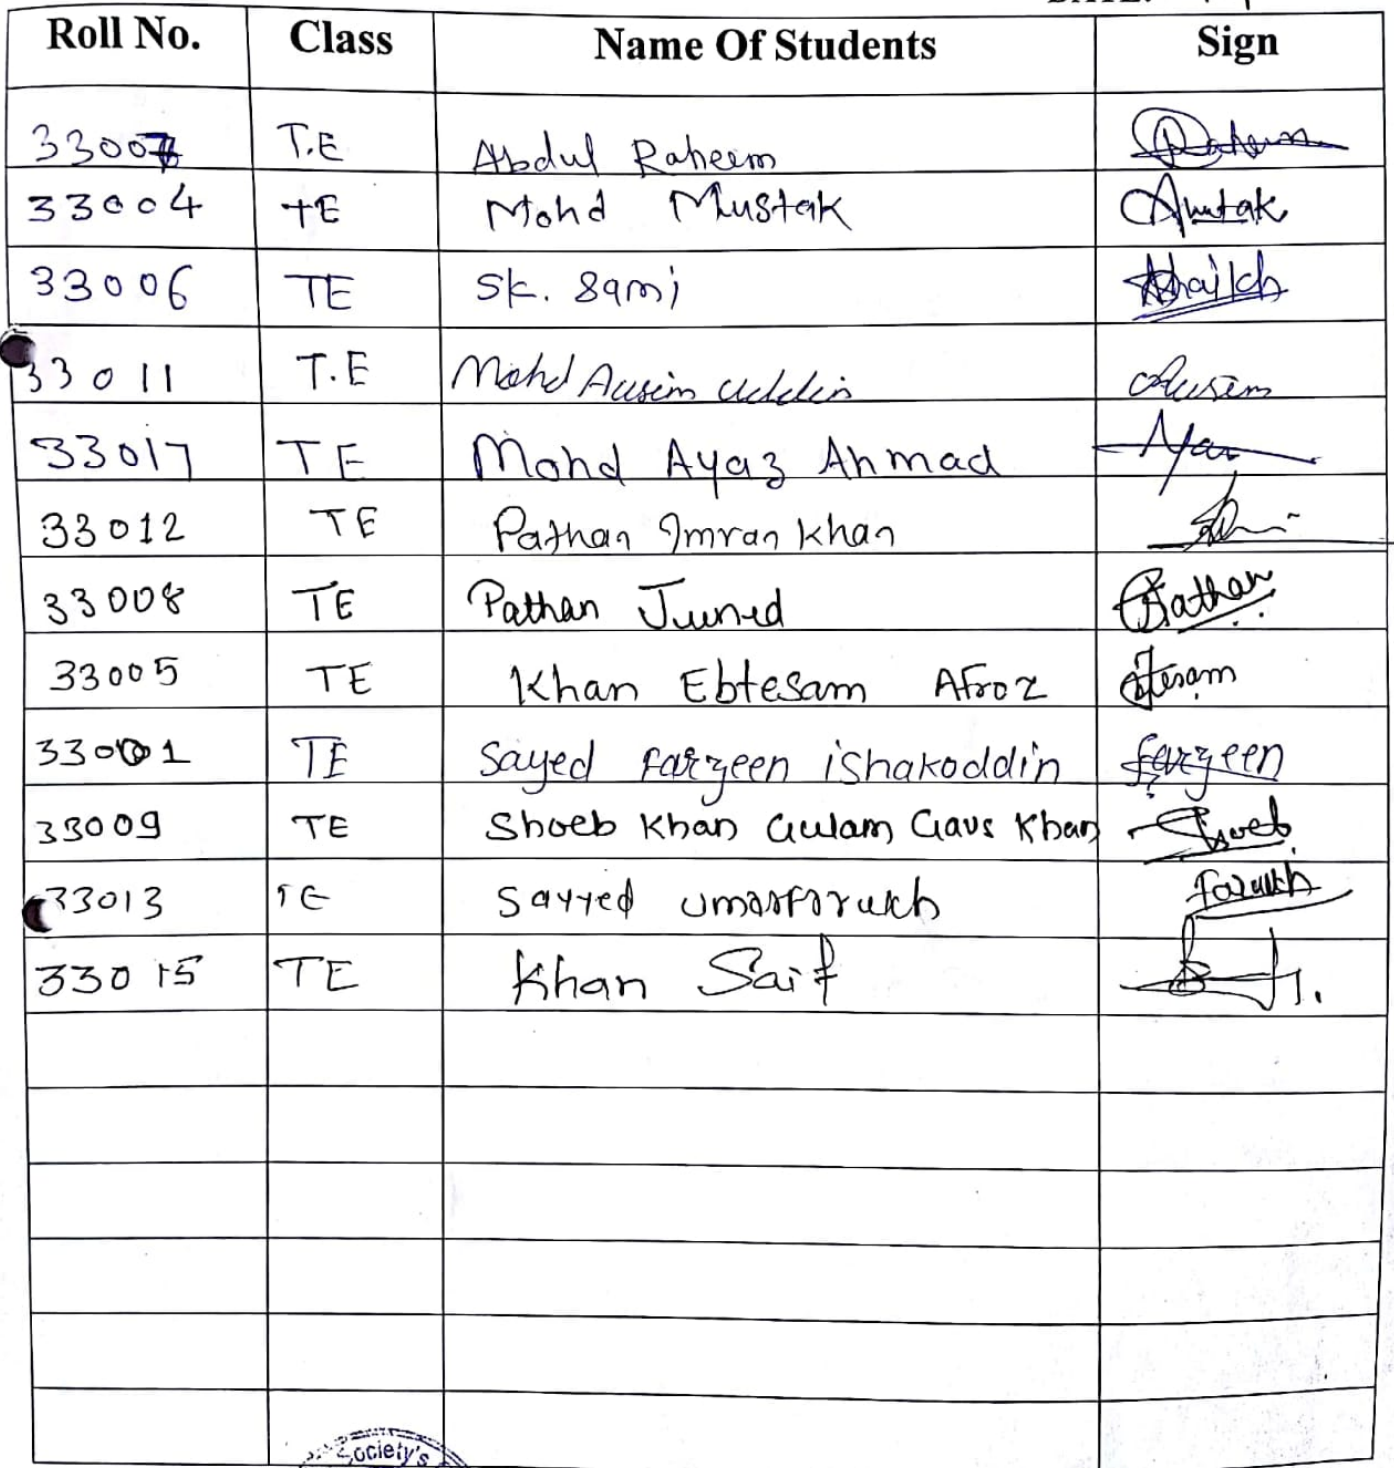 Roll No. Class Name Of Students Sign
33007 T.E Abdul Raheem Raheem
33004 TE Mohd Mustak
33006 TE Sk. Sami Shaikh
33011 T.E Mohd Ausim Uddin Ausim
33017 TE Mohd Ayaz Ahmad
33012 TE Pathan Imran Khan
33008 TE Pathan Juned Pathan
33005 TE Khan Ebtesam Afroz
33001 TE Sayed farzeen ishakoddin farzeen
33009 TE Shoeb Khan Gulam Gaus Khan Shoeb
33013 TE Sayyed umarfarukh farukh
33015 TE Khan Saif
Society's